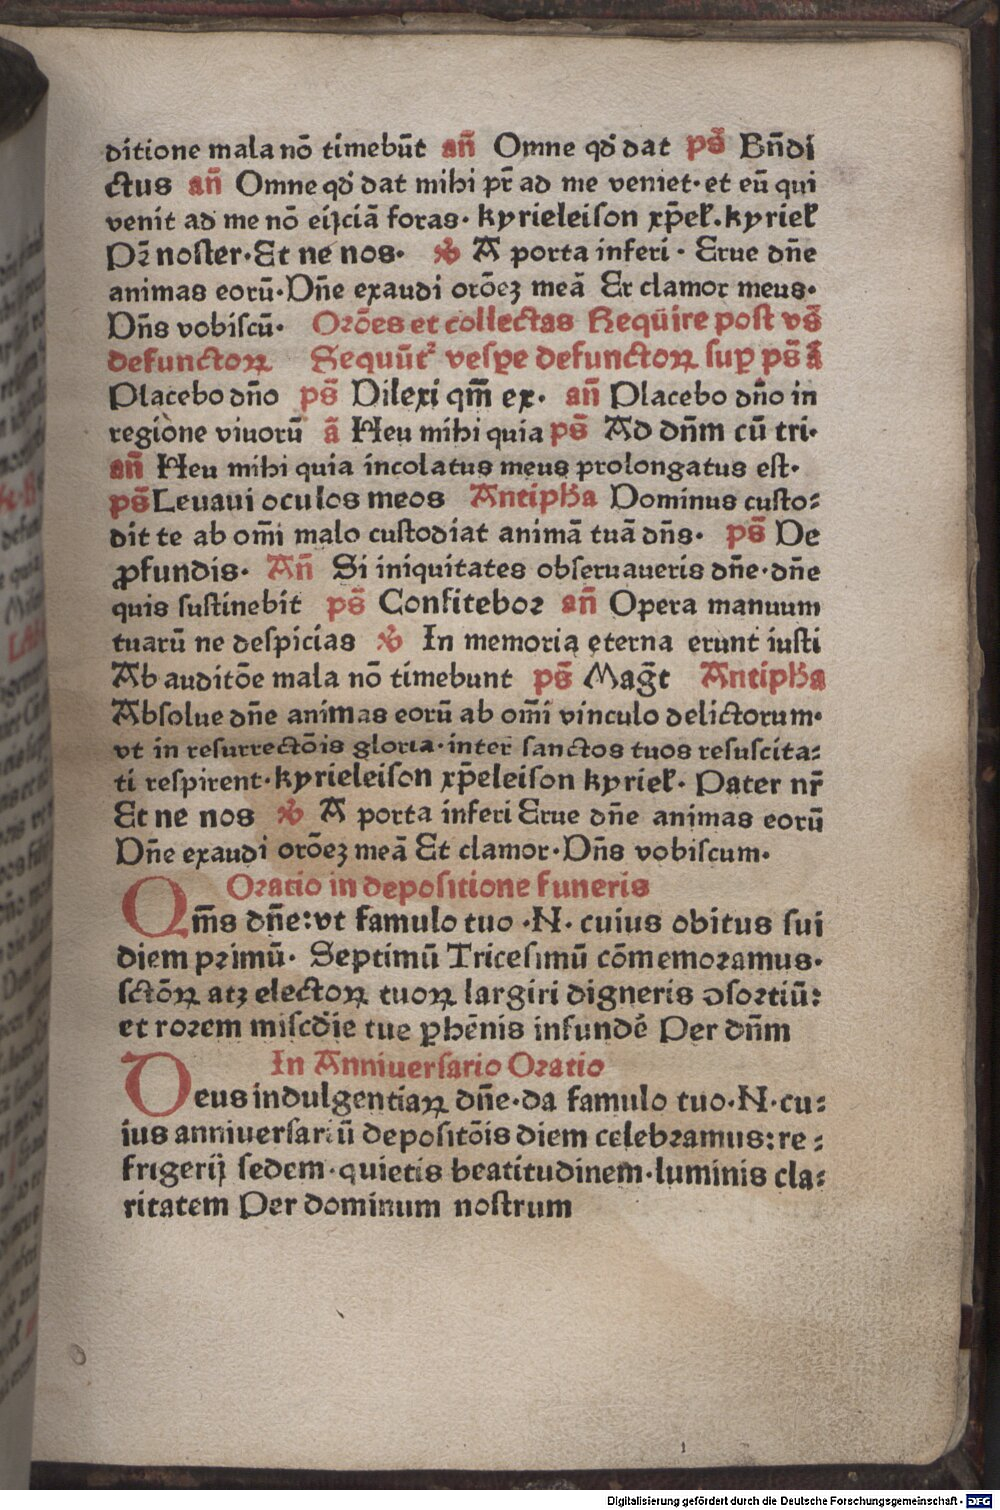 ditione mala nō timebūt an̄ Omne qd̛ dat ps̄ Bn̄di
ctus an̄ Omne qd̛ dat mihi pr̄ ad me veniet·et eū qui
venit ad me nō eijciā foras· kyrieleison xp̄eł.kyrieł
Pꝛ̄ noster·Et ne nos· ℣ A porta inferi · Erue dn̄e
animas eorū·Dn̄e exaudi orōeꝫ meā Et clamor meus·
Dn̄s vobiscū· Oꝛōes et collectas Reqūire post vs̄
defunctoꝝ Sequūt᷑ vesꝑe defunctoꝝ suꝑ ps̄ ā
Placebo dn̄o ps̄ Dilexi qm̄ ex· an̄ Placebo dn̄o in
regione viuorū ā Heu mihi quia ps̄ Ad dn̄m cū tri·
an̄ Heu mihi quia incolatus meus prolongatus est·
ps̄ Leuaui oculos meos Antiph̄a Dominus custo⸗
dit te ab om̄i malo custodiat animā tuā dn̄s· ps̄ De
ꝓfundis· An̄ Si iniquitates obseruaueris dn̄e·dn̄e
quis sustinebit ps̄ Confiteboꝛ an̄ Opera manuum
tuarū ne despicias ℣ In memoria eterna erunt iusti
Ab auditōe mala nō timebunt ps̄ Mag̅t Antiph̄a
Absolue dn̄e animas eorū ab om̄i vinculo delictorum·
vt in resurrectōis gloria·inter sanctos tuos resuscita⸗
ti respirent·kyrieleison xp̄eleison kyrieł· Pater nr̄
Et ne nos ℣ A porta inferi Erue dn̄e animas eorū
Dn̄e exaudi orōeꝫ meā Et clamor·Dn̄s vobiscum·
Oꝛatio in depositione funeris
Qm̄s dn̄e:vt famulo tuo ·N· cuius obitus sui
diem pꝛimū· Septimū Tricesimū cōmemoꝛamus·
sctōꝝ atꝫ electoꝝ tuoꝝ largiri digneris ↄsoꝛtiū:
et roꝛem mis̄cdie tue ꝑhēnis infundē Per dn̄m
In Anniuersario Oꝛatio
Deus indulgentiaꝝ dn̄e·da famulo tuo·N·cu⸗
ius anniuersariū depositōis diem celebꝛamus:re⸗
frigerij sedem·quietis beatitudinem·luminis cla⸗
ritatem Per dominum nostrum
1
Digitalisierung gefördert durch die Deutsche Forschungsgemeinschaft - DFG